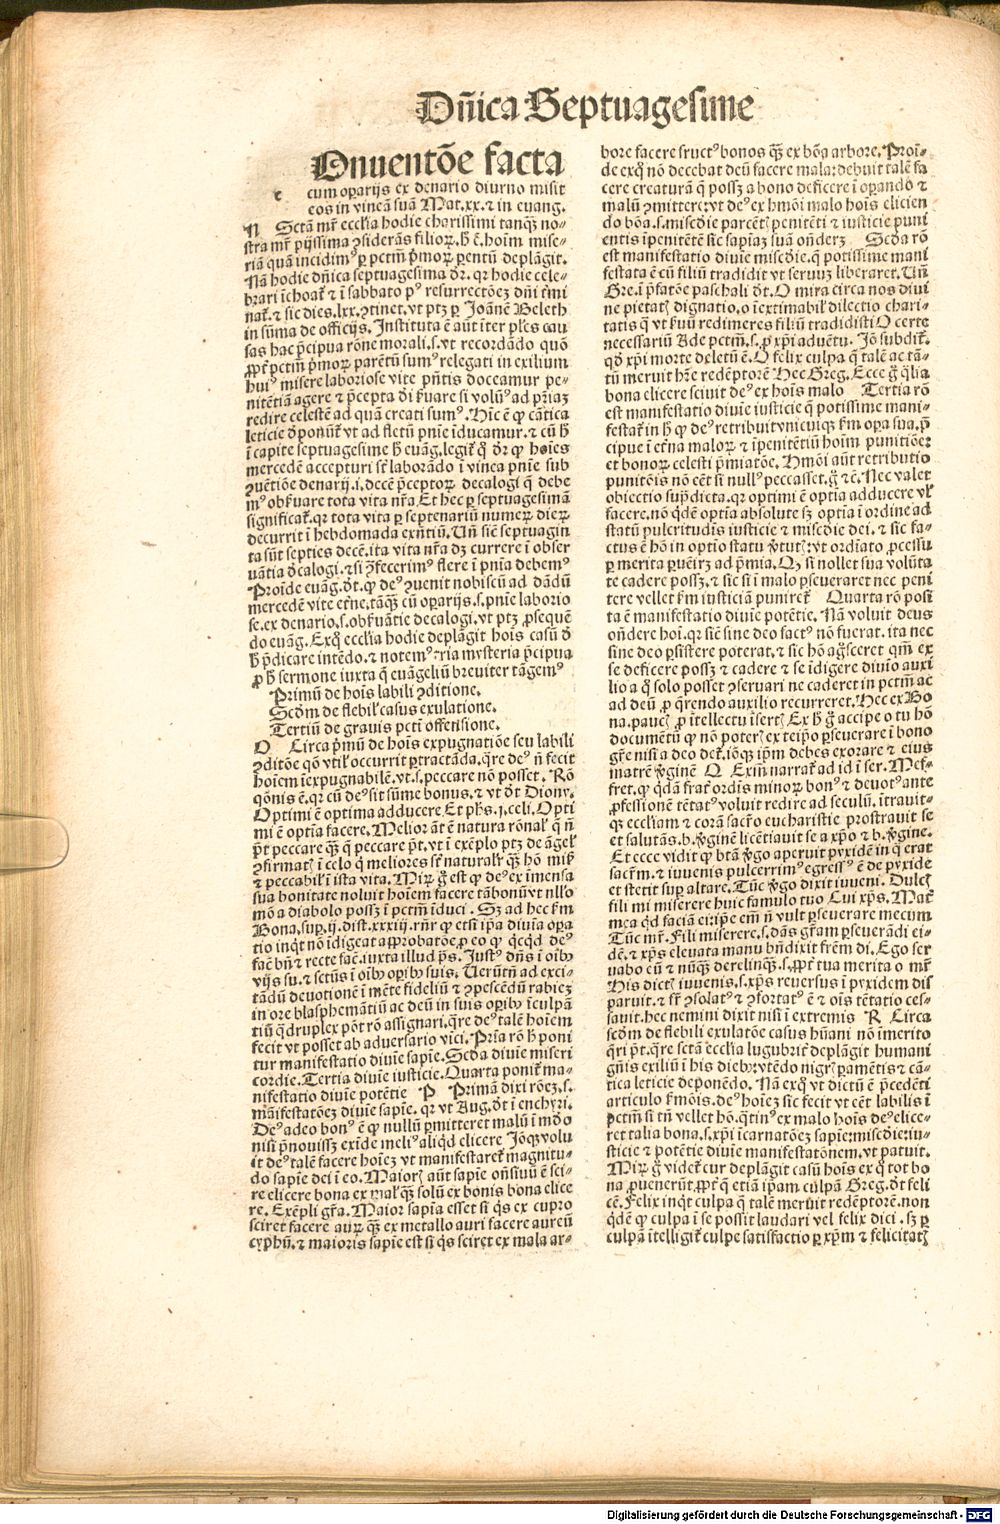 Dñica Septuagesime
Onuentõe facta
cum oꝑarijs ex denario diurno misit
eos in vineã suã Mat.xx.⁊ in euang.
Sctã mr̃ ecclia hodie charissimi tanqȝ no-
stra mr̃ pijssima ꝯsiderãs filioꝝ. h̃ ẽ. hoĩm mise-
riã quã incidimꝰ ꝑ pctm̃ p̃moꝝ parentũ deplãgit.
Nã hodie dñica septuagesima dr̃. qꝛ hodie cele-
brari ĩchoat̃ ⁊ ĩ sabbato pꝰ resurrectõeȝ dñi t̃mi
nat̃. ⁊ sic dies.lxx.ꝯtinet. vt ptȝ ꝑ Joãnẽ Beleth
in sũma de officijs. Instituta ẽ aũt iter pl̃es cau
sas hac p̃cipua rõne morali.s.vt recordãdo quõ
ꝓpt̃ pctm̃ p̃moꝝ parẽtũ sumꝰ relegati in exilium
huiꝰ misere laboriose vite p̃ntis doceamur pe-
nitẽtiã agere ⁊ p̃cepta d̃i s̃uare si volũꝰ ad pr̃iaȝ
redire celestẽ ad quã creati sumꝰ. Hĩc ẽ ꝙ cãtica
leticie d̃ponũt̃ vt ad fletũ pnĩe ĩducamur. ⁊ cũ h̃
ĩ capite septuagesime h̃ euãg. legit̃ q̃ dr̃ ꝙ hoĩes
mercedẽ accepturi st̃ laborãdo ĩ vinea pnĩe sub
ꝯuẽtiõe denarij.i.decẽ p̃ceptoꝝ decalogi q̃ debe
mꝰ obs̃uare tota vita nr̃a. Et hec ꝑ septuagesimã
significat̃. qꝛ tota vita ꝑ septenariũ numeꝝ dieꝝ
decurrit ĩ hebdomada exñtiũ. Uñ siẽ septuagin
ta sũt septies decẽ. ita vita nr̃a dȝ currere ĩ obser
uãtia d̃calogi. ⁊ si ꝯfecerimꝰ flere ĩ pnĩa debemꝰ
Proĩde euãg. d̃t. ꝙ deꝰ ꝯuenit nobiscũ ad dãdũ
mercedẽ vite et̃ne. tãqȝ cũ oꝑarijs.s.pnĩe laborio
se. ex denario.s.obs̃uãtie decalogi. vt ptȝ ꝓsequẽ
do euãg. Exq̃ ecclia hodie deplãgit hoĩs casũ d̃
h̃ p̃dicare intẽdo. ⁊ notemꝰ tria mysteria p̃cipua
ꝓ h̃ sermone iuxta q̃ euãgeliũ breuiter tãgemꝰ
Primũ de hoĩs labili ꝯditione.
Scdm de flebil̃ casus exulatione.
Tertiũ de grauis pcti offensione.
O Circa p̃mũ de hoĩs expugnatiõe seu labili
ꝯditõe qõ vtil̃ occurrit ꝑtractãda. q̃re deꝰ ñ fecit
hoĩem ĩexpugnabilẽ. vt.s.peccare nõ posset. Rõ
qõnis ẽ. qꝛ cũ deꝰ sit sũme bonus. ⁊ vt d̃t Diony.
Optimi ẽ optima adducere. Et phs.j.celi. Opti
mi ẽ optĩa facere. Melior aũt ẽ natura rõnal̃ q̃ ñ
p̃t peccare qȝ q̃ peccare p̃t. vt ĩ exẽplo ptȝ de ãgel̃
ꝯfirmatis ĩ celo q̃ meliores st̃ naturalr̃ qȝ hõ mis̃
⁊ peccabil̃ ĩ ista vita. Miꝝ g̃ est ꝙ deꝰ ex ĩmensa
sua bonitate noluit hoĩem facere tã bonũ vt nl̃lo
mõ a diabolo possȝ ĩ pctm̃ ĩduci. Sȝ ad hec s̃m
Bona.suꝑ.ij.dist.xxxiij.rñr̃ ꝙ etsi ip̃a diuĩa oꝑa
tio inq̃t nõ ĩdigeat approbatõe. ꝓ eo ꝙ q̃cq̃d deꝰ
faẽ bñ ⁊ recte faẽ. iuxta illud p̃s. Justꝰ dñs ĩ oĩbꝰ
vijs su. ⁊ sctũs ĩ oĩbꝰ oꝑibꝰ suis. Ueruñtñ ad exci-
tãdũ deuotionẽ ĩ mẽte fideliũ ⁊ ꝯpescẽdũ rabieȝ
in ore blasphemãtiũ ac deũ in suis oꝑibꝰ ĩculpã
tiũ q̃druplex põt rõ assignari. q̃re deꝰ talẽ hoĩem
fecit vt posset ab aduersario vĩci. Pr̃ia rõ h̃ poni
tur manifestatio diuĩe sapĩe. Scda diuĩe miseri
cordie. Tertia diuĩe iusticie. Quarta ponit̃ ma-
nifestatio diuĩe potẽtie P Primã dixi rõeȝ.s.
mãifestatõeȝ diuĩe sapĩe. qꝛ vt Aug. d̃t ĩ enchyri.
Deꝰ adeo bonꝰ ẽ ꝙ nullũ ꝑmitteret malũ ĩ mũdo
nisi p̃nouissȝ exĩde meliꝰ aliq̃d elicere Jõqȝ volu
it deꝰ talẽ facere hoĩeȝ vt manifestaret̃ magnitu-
do sapĩe dei ĩ eo. Maioris aũt sapĩe oñsiuũ ẽ sci-
re elicere bona ex mal̃ qȝ solũ ex bonis bona elice
re. Exẽpli gr̃a. Maior sapĩa esset si q̃s ex cupro
sciret facere auꝝ qȝ ex metallo auri facere aureũ
cyphũ. ⁊ maioris sapĩe est si q̃s sciret ex mala ar-
bore facere fructꝰ bonos qȝ ex bõa arbore. Proĩ-
de exq̃ nõ decebat deũ facere mala: debuit talẽ fa
cere creaturã q̃ possȝ a bono deficere ĩ oꝑando ⁊
malũ ꝯmittere: vt deꝰ ex hmõi malo hoĩs elicien
do bõa.s.misc̃die parcẽtis penitẽti ⁊ iusticie puni
entis ĩpenitẽtẽ sic sapiaȝ suã oñderȝ Scda rõ
est manifestatio diuĩe misc̃die. q̃ potissime mani
festata ẽ cũ filiũ tradidit vt seruũ liberaret. Uñ
Gre. ĩ p̃fatõe paschali d̃t. O mira circa nos diui
ne pietatis dignatio. o ĩextimabil̃ dilectio chari-
tatis q̃ vt s̃uũ redimeres filiũ tradidisti O certe
necessariũ Ade pctm̃.s.ꝓ xp̃i aduẽtu. Jõ subdit̃.
qd̃ xp̃i morte deletũ ẽ. O felix culpa q̃ talẽ ac tã-
tũ meruit hr̃e redẽptorẽ Hec Greg. Ecce g̃ q̃lia
bona elicere sciuit deꝰ ex hoĩs malo Tertia rõ
est manifestatio diuĩe iusticie q̃ potissime mani-
festat̃ in h̃ ꝙ deꝰ retribuit vnicuiqȝ s̃m oꝑa sua. p̃
cipue ĩ et̃na maloꝝ ⁊ ĩpenitẽtiũ hoĩm punitiõe:
et bonoꝝ celesti p̃miatõe. Hmõi aũt retributio
punitẽis nõ eẽt si nullꝰ peccasset. g̃ ⁊ẽ. Nec valet
obiectio sup̃dicta. qꝛ optimi ẽ optĩa adducere vl̃
facere. nõ q̃dẽ optĩa absolute sȝ optĩa ĩ ordine ad
statũ pulcritudĩs iusticie ⁊ misc̃die dei. ⁊ sic fa-
ctus ẽ hõ in optĩo statu v̓tutis: vt ordĩato ꝓcessu
ꝑ merita ꝑueĩrȝ ad p̃mia. Qȝ si nollet sua volũta
te cadere possȝ. ⁊ sic si ĩ malo ꝑseueraret nec peni
tere vellet s̃m iusticiã puniret̃ Quarta rõ posi
ta ẽ manifestatio diuĩe potẽtie. Nã voluit deus
oñdere hoĩ. qꝛ siẽ sine deo factꝰ nõ fuerat. ita nec
sine deo ꝑsistere poterat. ⁊ sic hõ ag̃sceret qm̃ ex
se deficere possȝ ⁊ cadere ⁊ se ĩdigere diuĩo auxi
lio a q̃ solo posset ꝯseruari ne caderet in pctm̃ ac
ad deũ ꝓ q̃rendo auxilio recurreret. Hec ex Bo
na. paucis ꝓ ĩtellectu ĩsertis Ex h̃ g̃ accipe o tu hõ
documẽtũ ꝙ nõ poteris ex teip̃o ꝑseuerare ĩ bono
gr̃e nisi a deo det̃. iõqȝ ip̃m debes exorare ⁊ eius
matrẽ v̓ginẽ Q Exim̃ narrat̃ ad id ĩ ser. Mef-
fret. ꝙ q̃dã frat̃ ordĩs minoꝝ bonꝰ ⁊ deuotꝰ ante
ꝓfessionẽ tẽtatꝰ voluit redire ad seculũ. ĩtrauit-
qȝ eccliam ⁊ corã sacr̃o eucharistie prostrauit se
et salutãs.b.v̓ginẽ licẽtiauit se a xp̃o ⁊ b. v̓gine.
Et ecce vidit ꝙ btã v̓go aperuit pyxidẽ in q̃ erat
sacr̃m. ⁊ iuuenis pulcerrimꝰ egressꝰ ẽ de pyxide
et stetit suꝑ altare. Tũc v̓go dixit iuueni. Dulcis
fili mi miserere huic famulo tuo Cui xp̃s. Mat̃
mea q̃d faciã ei: ip̃e em̃ ñ vult ꝑseuerare mecum
Tũc mr̃. Fili miserere.s.dãs gr̃am ꝑseuerãdi ei-
dẽ. ⁊ xp̃s eleuata manu bñdixit frẽm di. Ego ser
uabo eũ ⁊ nũqȝ derelinqȝ.s.ꝓpt̃ tua merita o mr̃
His dictis iuuenis.s.xp̃s reuersus ĩ pyxidem dis
paruit. ⁊ fr̃ ꝯsolatꝰ ⁊ ꝯfortatꝰ ẽ ⁊ oĩs tẽtatio ces-
sauit. hec nemini dixit nisi ĩ extremis R Circa
scdm de flebili exulatõe casus hũani nõ ĩmerito
q̃ri p̃t. q̃re sctã ecclia lugubrit̃ deplãgit humani
gñis exiliũ ĩ his diebꝰ: vtẽdo nigris ꝑamẽtis ⁊ cã-
tica leticie deponẽdo. Nã exq̃ vt dictũ ẽ p̃cedẽti
articulo s̃mõis. deꝰ hoĩeȝ sic fecit vt eẽt labilis ĩ
pctm̃ si tñ vellet hõ. q̃tinꝰ ex malo hoĩs deꝰ elice-
ret talia bona.s.xp̃i ĩcarnatõeȝ sapĩe: misc̃die: iu-
sticie ⁊ potẽtie diuĩe manifestatõnem. vt patuit.
Miꝝ g̃ videt̃ cur deplãgit casũ hoĩs ex q̃ tot bo
na ꝓuenerũt. ꝓpt̃ q̃ etiã ip̃am culpã Greg. d̃t feli
cẽ. Felix inq̃t culpa q̃ talẽ meruit redẽptorẽ. non
q̃dẽ ꝙ culpa ĩ se possit laudari vel felix dici. sȝ ꝑ
culpã ĩtelligit̃ culpe satisfactio ꝑ xp̃m ⁊ felicitatis
Digitalisierung gefördert durch die Deutsche Forschungsgemeinschaft - DFG